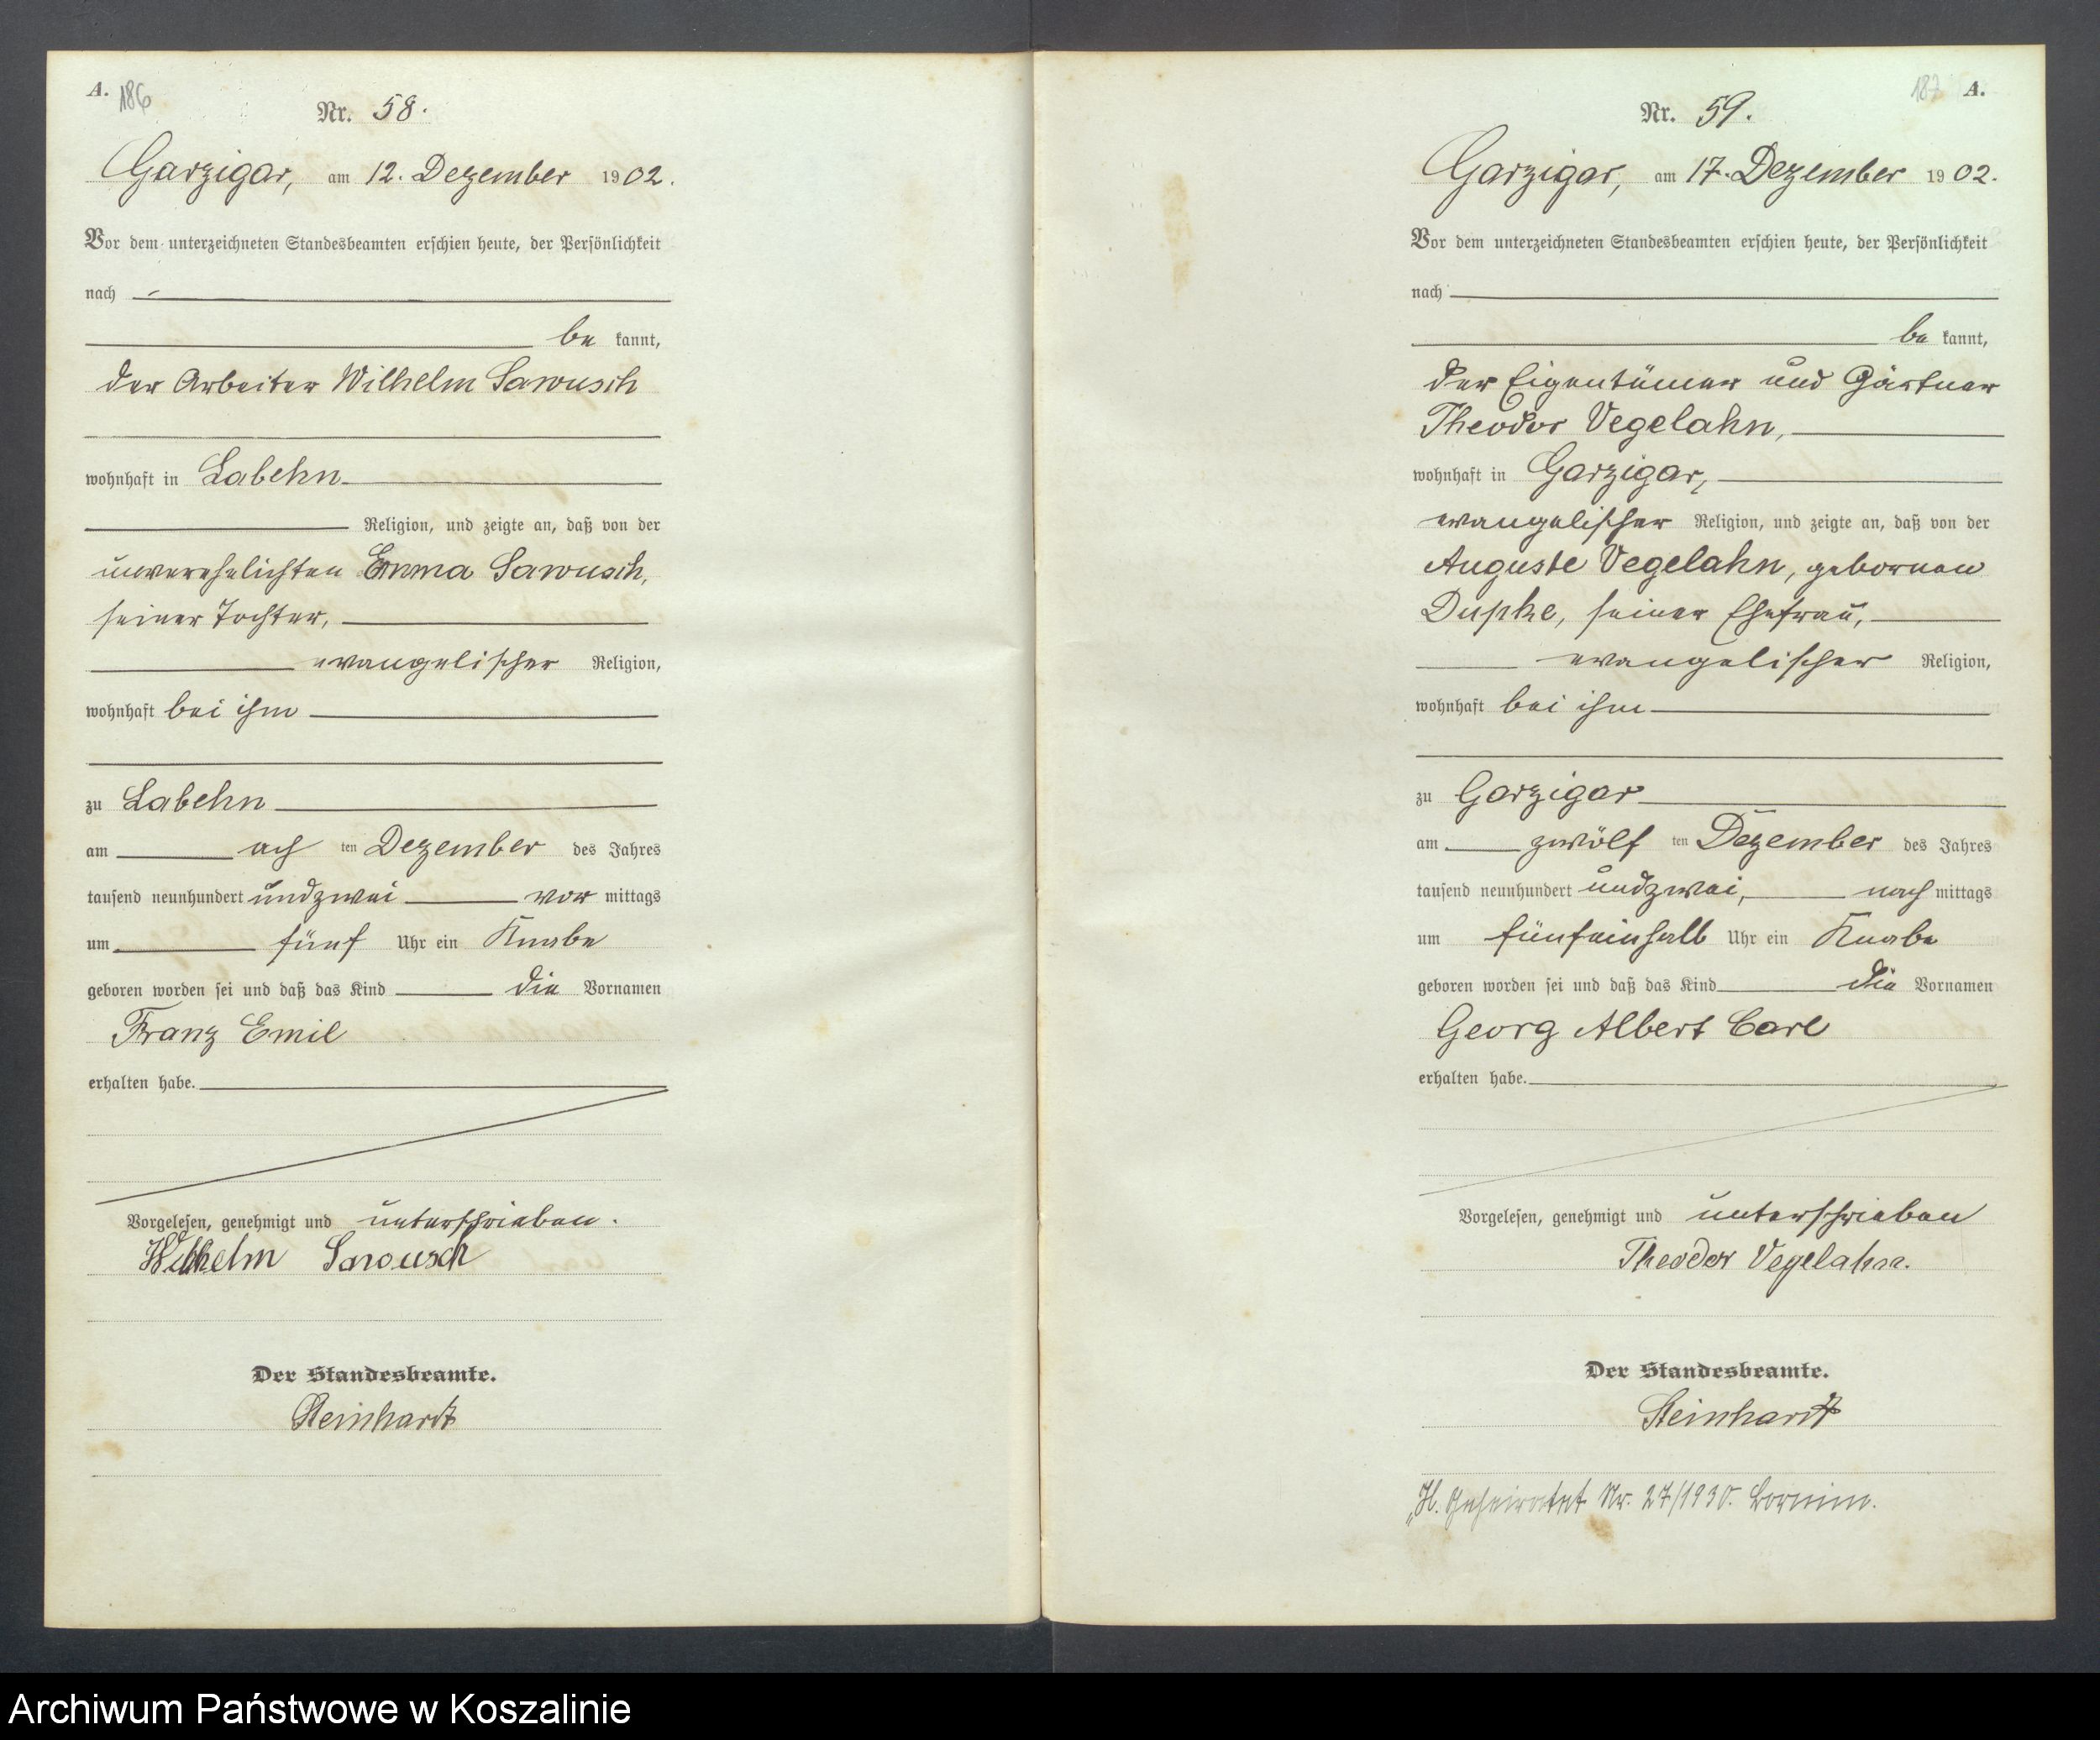 A. 186
Nr. 58.
Garzigar, am 12. Dezember 1902.
Vor dem unterzeichneten Standesbeamten erschien heute, der Persönlichkeit
nach
be kannt,
der Arbeiter Wilhelm Sawusch
wohnhaft in Labehn
Religion, und zeigte an, daß von der
unverehelichten Emma Sawusch,
seiner Tochter,
evangelischer Religion,
wohnhaft bei ihm
zu Labehn
am ach ten Dezember des Jahres
tausend neunhundert undzwei vor mittags
um fünf Uhr ein Knabe
geboren worden sei und daß das Kind die Vornamen
Franz Emil
erhalten habe.
Vorgelesen, genehmigt und unterschrieben.
Wilhelm Sawusch
Der Standesbeamte.
Steinhardt
187 A.
Nr. 59.
Garzigar, am 17. Dezember 1902.
Vor dem unterzeichneten Standesbeamten erschien heute, der Persönlichkeit
nach
be kannt,
der Eigentümer und Gärtner
Theodor Vegelahn,
wohnhaft in Garzigar,
evangelischer Religion, und zeigte an, daß von der
Auguste Vegelahn, gebornen
Dupke, seiner Ehefrau,
evangelischer Religion,
wohnhaft bei ihm
zu Garzigar
am zwölf ten Dezember des Jahres
tausend neunhundert undzwei, nach mittags
um fünfeinhalb Uhr ein Knabe
geboren worden sei und daß das Kind die Vornamen
Georg Albert Carl
erhalten habe.
Vorgelesen, genehmigt und unterschrieben
Theodor Vegelahn.
Der Standesbeamte.
Steinhardt
Geheiratet Nr. 27/1930. Bornim.
Archiwum Państwowe w Koszalinie